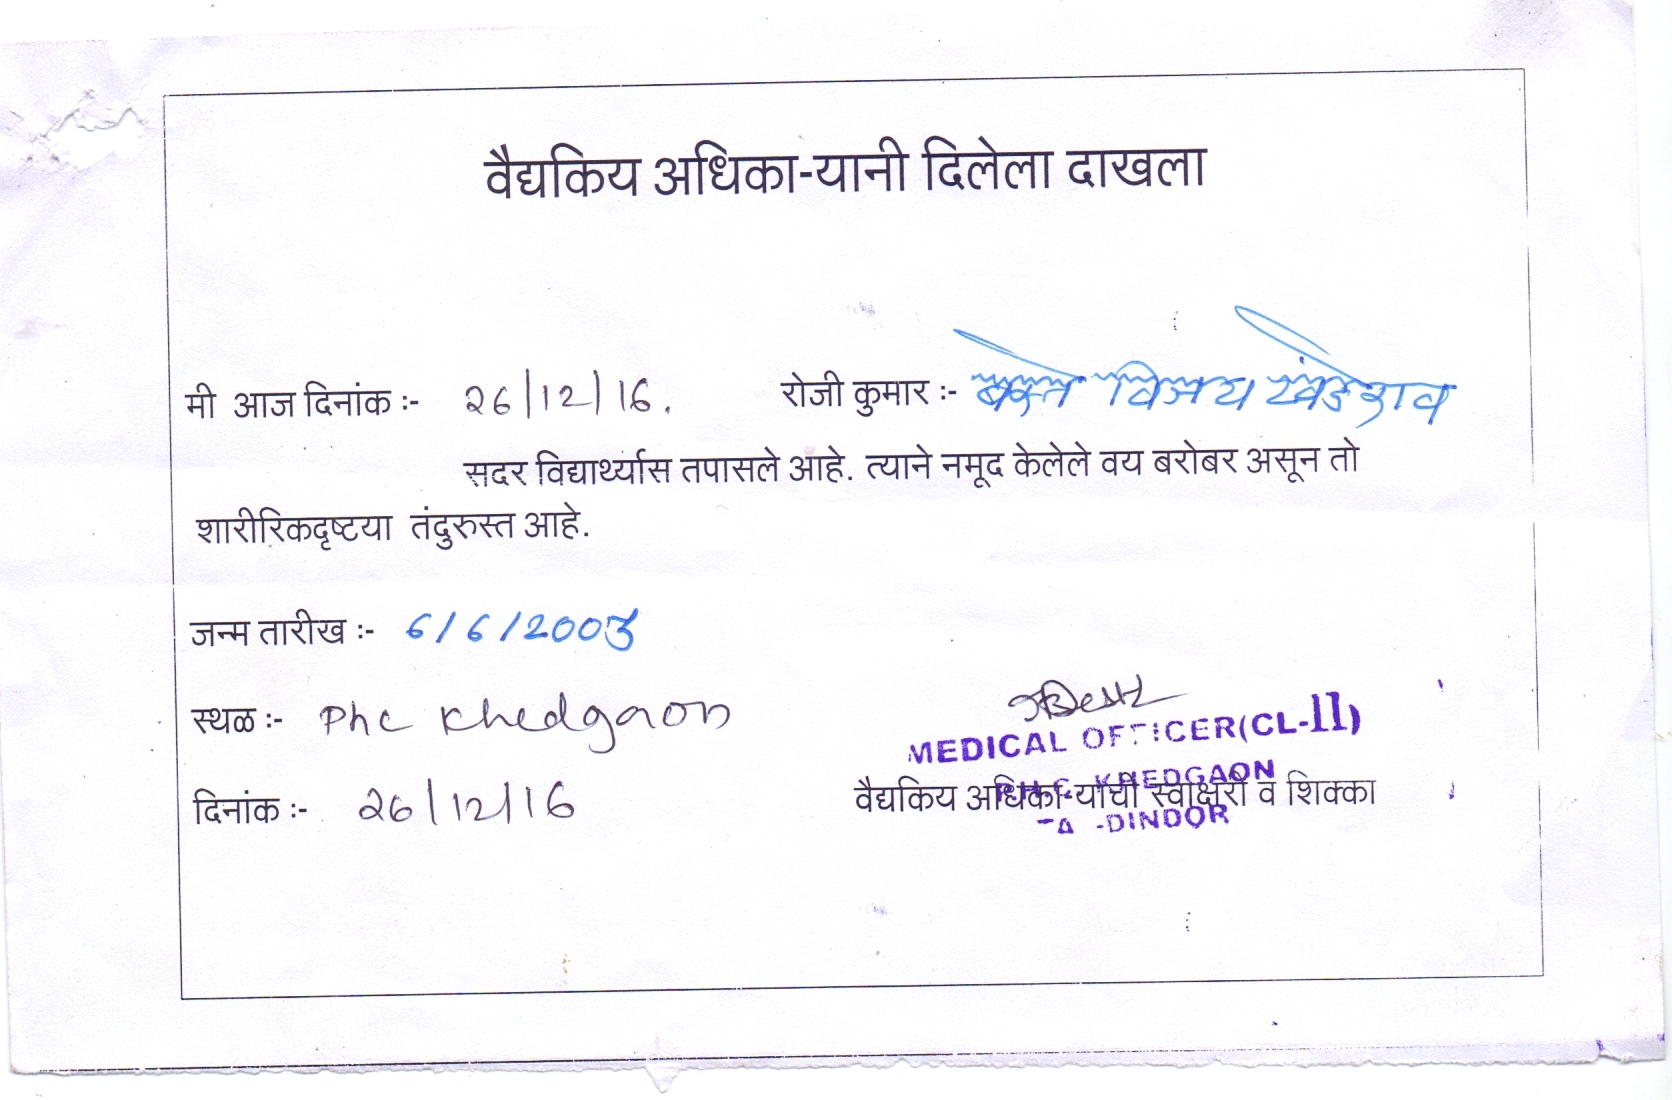 वैद्यकिय अधिका-यानी दिलेला दाखला
मी आज दिनांक :- 26/12/16. रोजी कुमार :- विजय खंडेराव
सदर विद्यार्थ्यास तपासले आहे. त्याने नमूद केलेले वय बरोबर असून तो
शारीरिकदृष्टया तंदुरुस्त आहे.
जन्म तारीख :- 6/6/2003
स्थळ :- Phc Khedgaon
MEDICAL OFFICER(CL-II)
P.H.C. KHEDGAON
वैद्यकिय अधिका-यांची स्वाक्षरी व शिक्का
-DINDOR
दिनांक :- 26/12/16